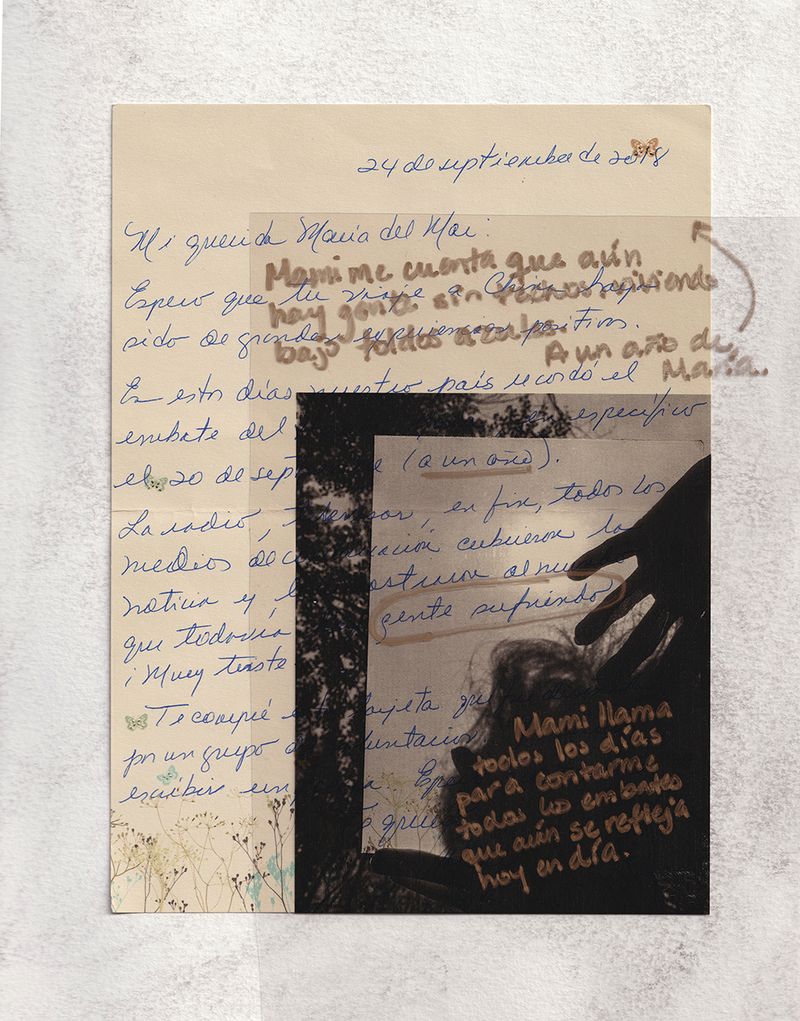 24 de septiembre de 2018
Mi querida María del Mar:
Mami me cuenta que aún
hay gente sin techos viviendo
bajo toldos azules.
A un año de
María.
Espero que tu viaje a China haya
sido de grandes experiencias positivas.
En estos días nuestro país recordó el
embate del en específico
el 20 de sept (a un año).
La radio, en fin, todos los
medios de cubrieron la
noticia y al
que todavía gente sufriendo
¡Muy triste
Te compré
por un grupo
escribir
Mami llama
todos los días
para contarme
todos los embates
que aún se refleja
hoy en día.